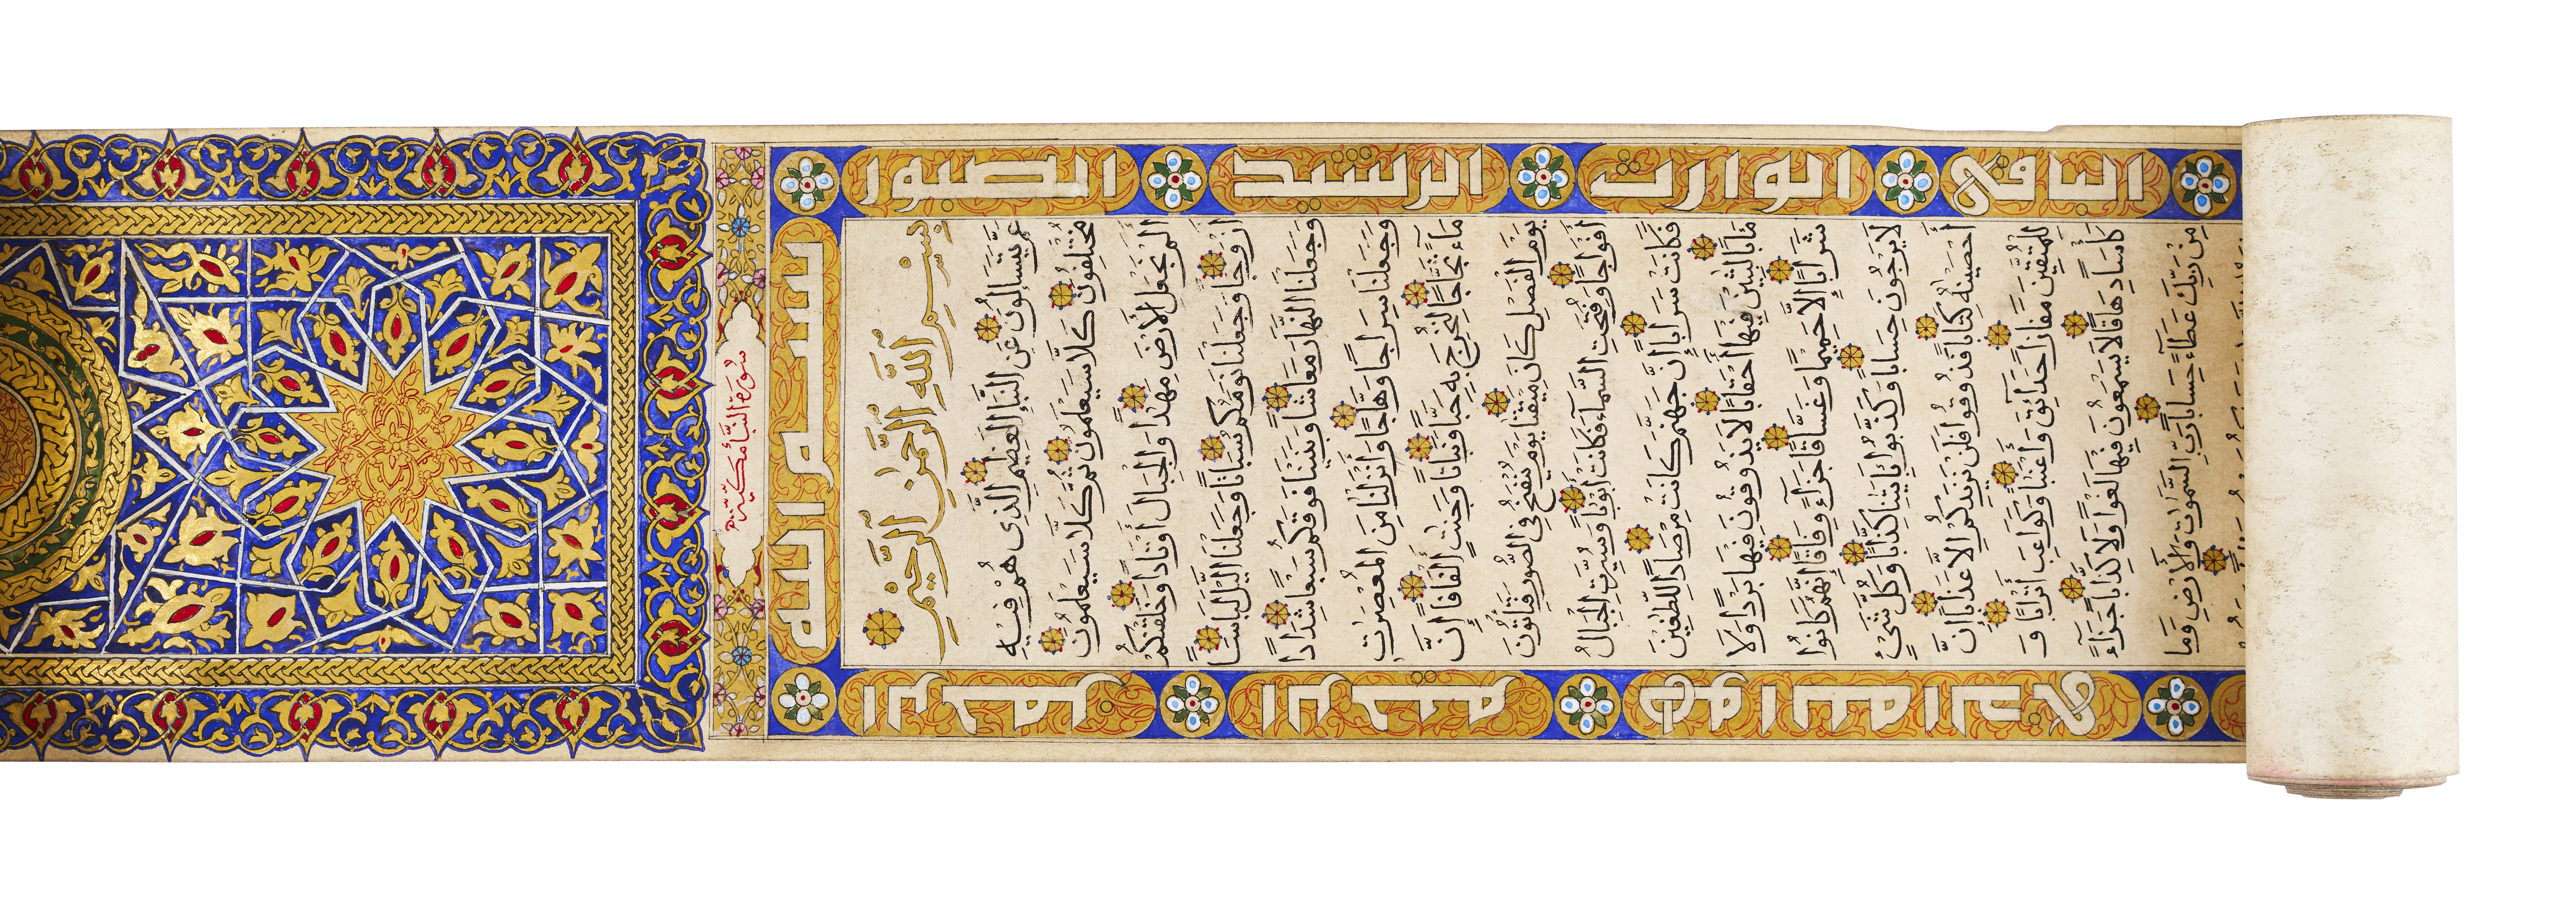 سُورَةُ النَّبَأ مَكِّيَّة
بسم الله
الرحمن
الرحيم
هو الله الذي
الصبور
الرشيد
الوارث
الباقي
بِسْمِ اللَّهِ الرَّحْمَنِ الرَّحِيمِ
عَمَّ يَتَسَاءَلُونَ عَنِ النَّبَإِ الْعَظِيمِ الَّذِي هُمْ فِيهِ
مُخْتَلِفُونَ كَلَّا سَيَعْلَمُونَ ثُمَّ كَلَّا سَيَعْلَمُونَ
أَلَمْ نَجْعَلِ الْأَرْضَ مِهَٰدًا وَالْجِبَالَ أَوْتَادًا وَخَلَقْنَٰكُمْ
أَزْوَٰجًا وَجَعَلْنَا نَوْمَكُمْ سُبَاتًا وَجَعَلْنَا الَّيْلَ لِبَاسًا
وَجَعَلْنَا النَّهَارَ مَعَاشًا وَبَنَيْنَا فَوْقَكُمْ سَبْعًا شِدَادًا
وَجَعَلْنَا سِرَاجًا وَهَّاجًا وَأَنْزَلْنَا مِنَ الْمُعْصِرَٰتِ
مَاءً ثَجَّاجًا لِنُخْرِجَ بِهِ حَبًّا وَنَبَاتًا وَجَنَّٰتٍ أَلْفَافًا إِنَّ
يَوْمَ الْفَصْلِ كَانَ مِيقَٰتًا يَوْمَ يُنْفَخُ فِي الصُّورِ فَتَأْتُونَ
أَفْوَاجًا وَفُتِحَتِ السَّمَاءُ فَكَانَتْ أَبْوَٰبًا وَسُيِّرَتِ الْجِبَالُ
فَكَانَتْ سَرَابًا إِنَّ جَهَنَّمَ كَانَتْ مِرْصَادًا لِلطَّٰغِينَ
مَآبًا لَٰبِثِينَ فِيهَا أَحْقَابًا لَا يَذُوقُونَ فِيهَا بَرْدًا وَلَا
شَرَابًا إِلَّا حَمِيمًا وَغَسَّاقًا جَزَاءً وِفَاقًا إِنَّهُمْ كَانُوا
لَا يَرْجُونَ حِسَابًا وَكَذَّبُوا بِآيَٰتِنَا كِذَّابًا وَكُلَّ شَيْءٍ
أَحْصَيْنَٰهُ كِتَابًا فَذُوقُوا فَلَنْ نَزِيدَكُمْ إِلَّا عَذَابًا إِنَّ
لِلْمُتَّقِينَ مَفَازًا حَدَائِقَ وَأَعْنَٰبًا وَكَوَاعِبَ أَتْرَابًا وَ
كَأْسًا دِهَاقًا لَا يَسْمَعُونَ فِيهَا لَغْوًا وَلَا كِذَّابًا جَزَاءً
مِنْ رَبِّكَ عَطَاءً حِسَابًا رَبِّ السَّمَٰوَٰتِ وَالْأَرْضِ وَمَا